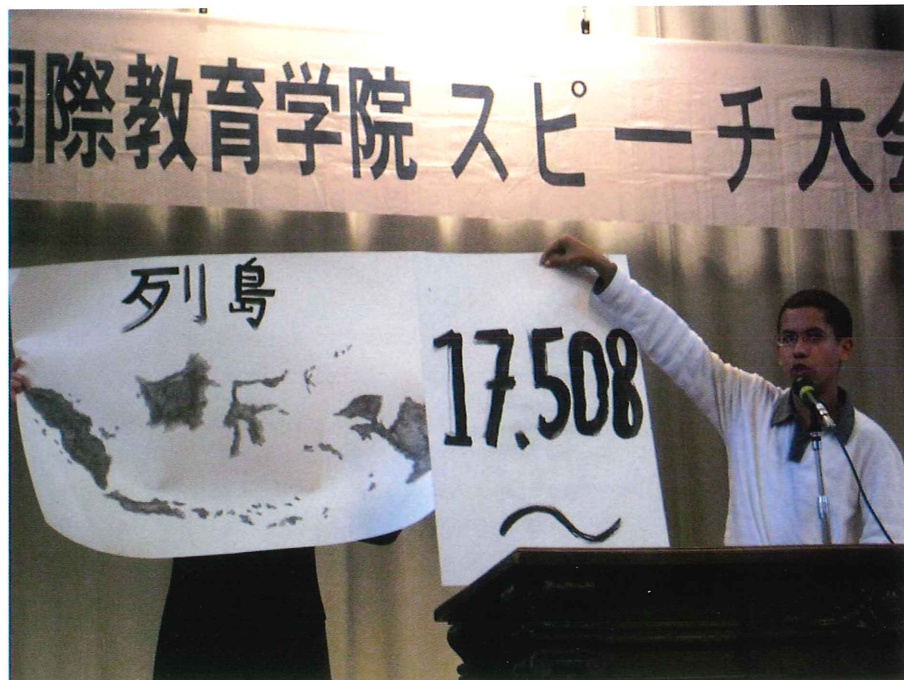 国際教育学院 スピーチ大会
列島
17.508
～